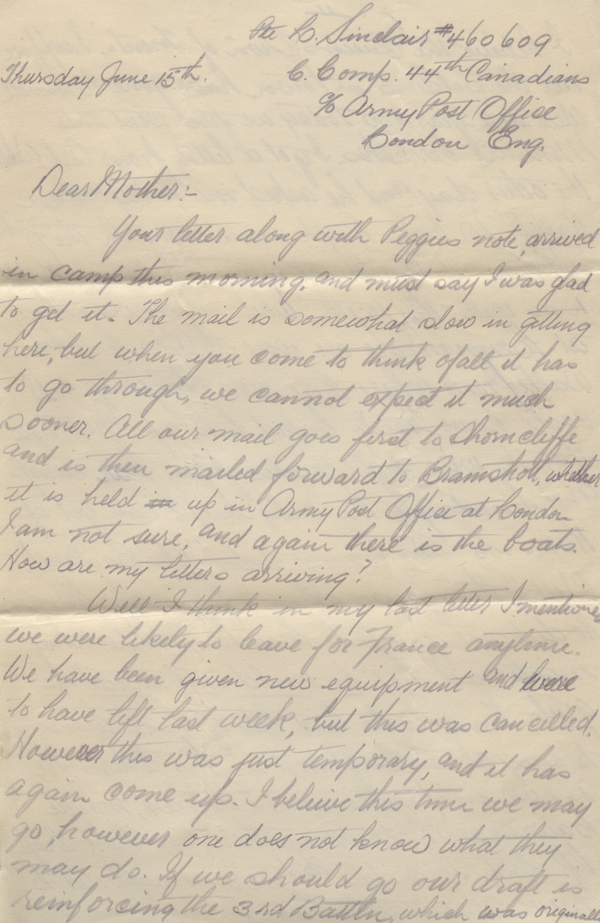 Pte L. Sinclair #460609
Thursday June 15th. C. Comp. 44th Canadians
c/o Army Post Office
London Eng.
Dear Mother:-
Your letter along with Peggies note, arrived
in camp this morning, and must say I was glad
to get it. The mail is somewhat slow in getting
here, but when you come to think of all it has
to go through, we cannot expect it much
sooner. All our mail goes first to Shorncliffe
and is then mailed forward to Bramshott, whether
it is held in up in Army Post Office at London
I am not sure, and again there is the boats.
How are my letters arriving?
Well I think in my last letter I mentioned
we were likely to leave for France anytime.
We have been given new equipment and were
to have left last week, but this was cancelled.
However this was just temporary, and it has
again come up. I believe this time we may
go, however one does not know what they
may do. If we should go our draft is
reinforcing the 3rd Battln, which was originally